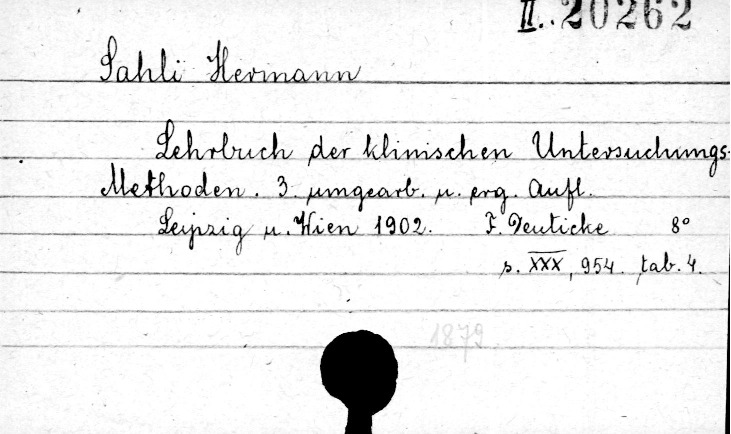 II. 20262
Sahli Hermann
Lehrbuch der klinischen Untersuchungs-
Methoden. 3. umgearb. u. erg. Aufl.
Leipzig u. Wien 1902. F. Deuticke 8°
s. XXX, 954. tab. 4.
1879